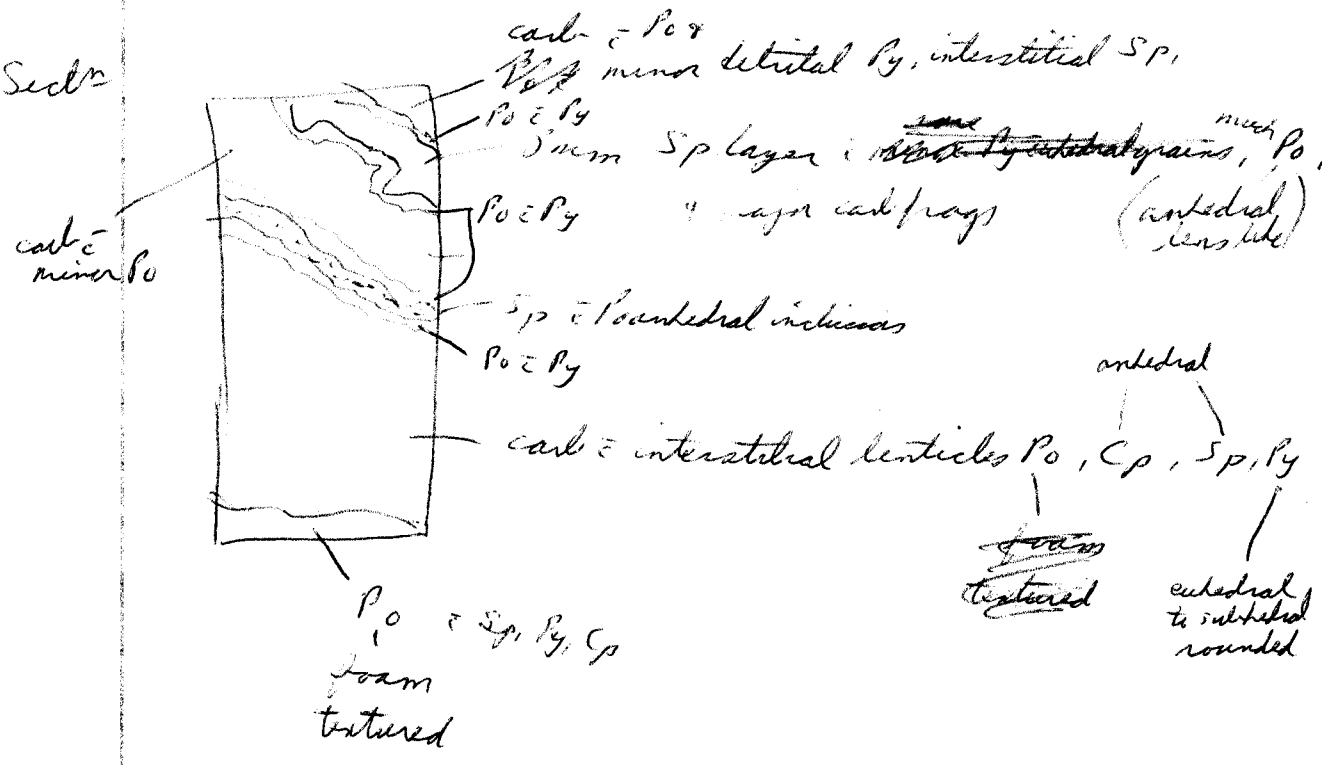 Sectn
carb c̄ Po &
minor detrital Py, interstitial Sp,
Po c̄ Py
3mm Sp layer c̄ much Po,
& major carb frags (anhedral, lens like)
Po c̄ Py
carb c̄
minor Po
Sp c̄ Po anhedral inclusions
Po c̄ Py
anhedral
carb c̄ interstitial lenticles Po, Cp, Sp, Py
foam
textured
euhedral
to subhedral
rounded
Po c̄ Sp, Py, Cp
foam
textured